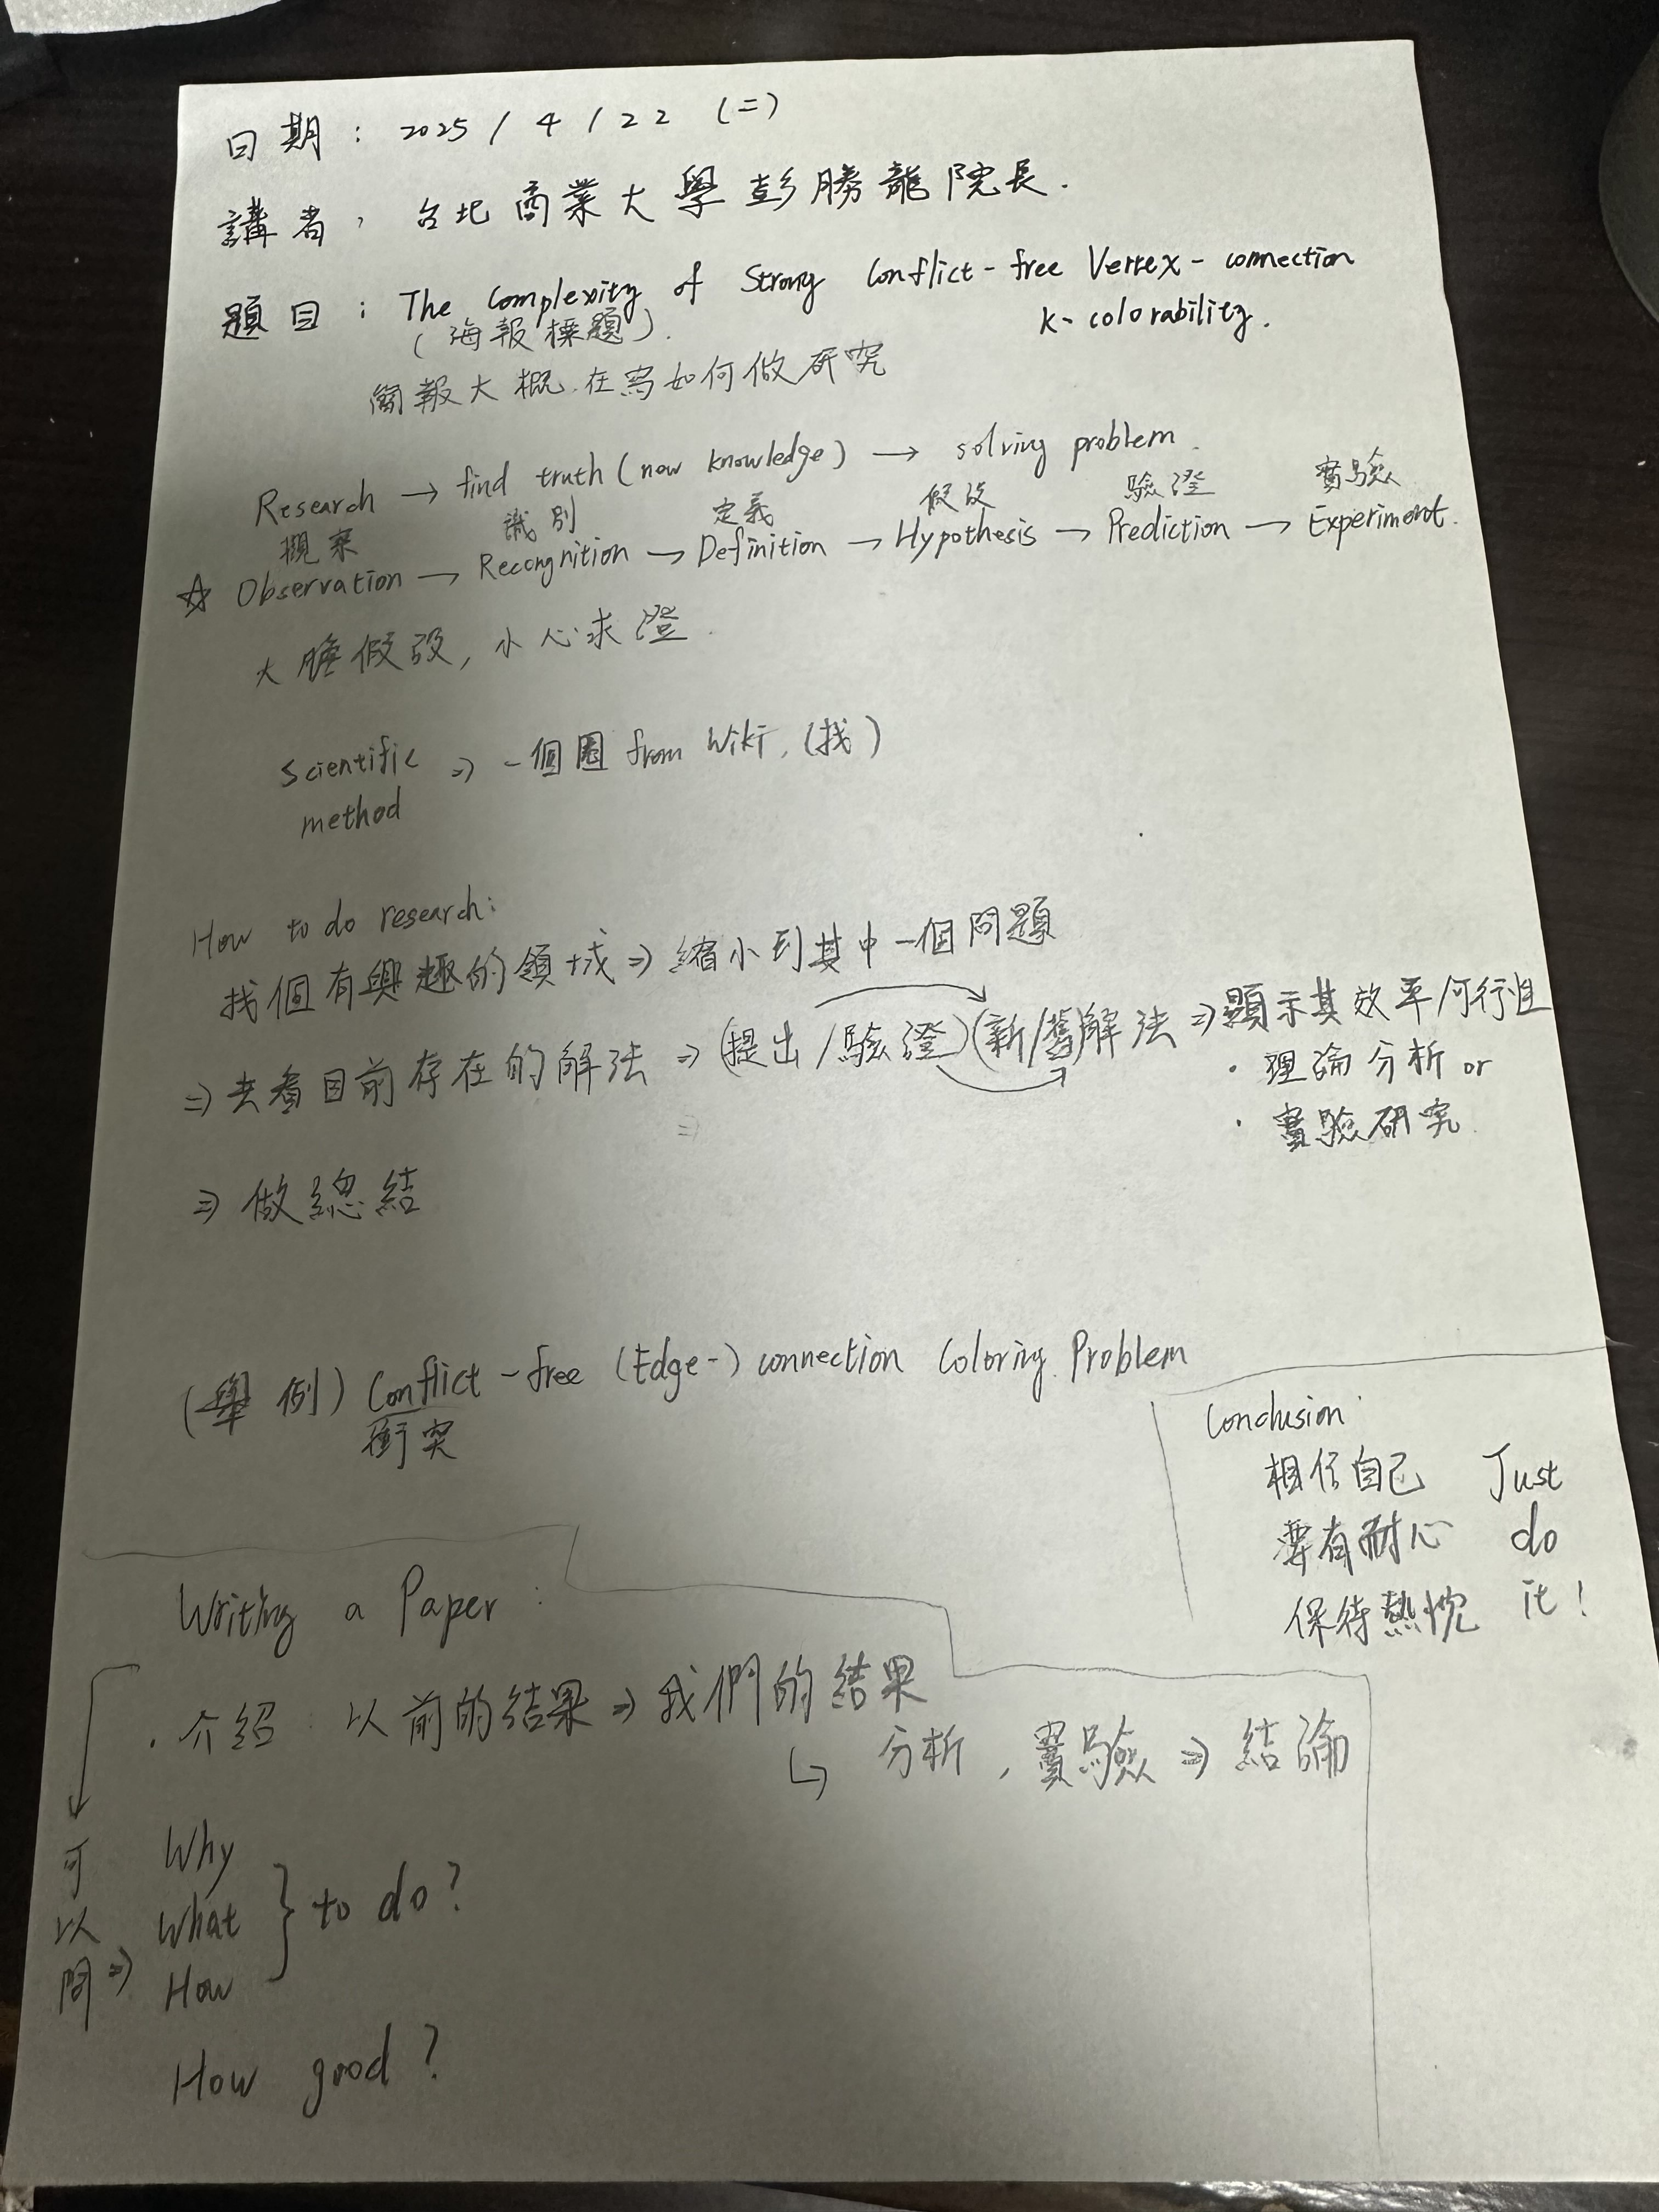 日期：2025 / 4 / 22 (二)
講者，台北商業大學彭勝龍院長.
題目：The Complexity of Strong Conflict-free Vertex-connection
k-colorability.
(海報標題).
簡報大概在寫如何做研究
Research → find truth (new knowledge) → solving problem.
觀察 識別 定義 假設 驗證 實驗
☆ Observation → Recongnition → Definition → Hypothesis → Prediction → Experiment.
大膽假設, 小心求證.
Scientific ⇒ 一個圈 from Wiki, (找)
method
How to do research:
找個有興趣的領域 ⇒ 縮小到其中一個問題
⇒ 去看目前存在的解法 ⇒ (提出/驗證)(新/舊)解法 ⇒ 顯示其效率/可行性
· 理論分析 or
· 實驗研究
⇒ 做總結
(舉例) Conflict-free (Edge-) connection Coloring Problem
衝突
Conclusion:
相信自己 Just
要有耐心 do
保持熱忱 it!
Writing a Paper:
· 介紹 以前的結果 ⇒ 我們的結果
↳ 分析, 實驗 ⇒ 結論
可以問 ⇒
Why
What } to do?
How
How good?